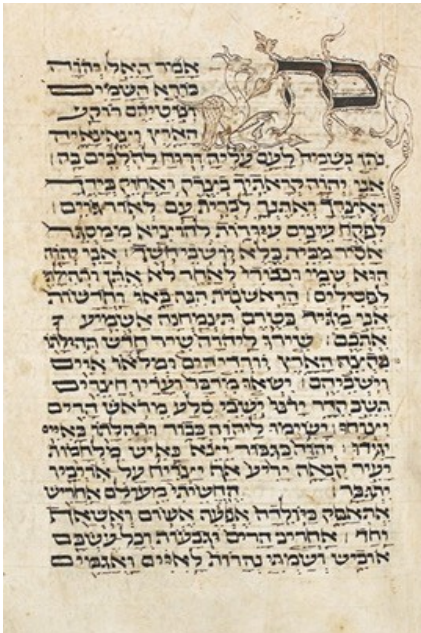 כה אמר האל יהוה
בורא השמים
ונוטיהם רוקע
הארץ וצאצאיה
נתן נשמה לעם עליה ורוח להלכים בה׃
אני יהוה קראתיך בצדק ואחזק בידך
ואצרך ואתנך לברית עם לאור גוים׃
לפקח עינים עורות להוציא ממסגר
אסיר מבית כלא יושבי חשך׃ אני יהוה
הוא שמי וכבודי לאחר לא אתן ותהלתי
לפסילים׃ הראשנות הנה באו וחדשות
אני מגיד בטרם תצמחנה אשמיע
אתכם׃ שירו ליהוה שיר חדש תהלתו
מקצה הארץ יורדי הים ומלאו איים
ויושביהם׃ ישאו מדבר ועריו חצרים
תשב קדר ירנו יושבי סלע מראש הרים
יצוחו׃ ישימו ליהוה כבוד ותהלתו באיים
יגידו׃ יהוה כגבור יצא כאיש מלחמות
יעיר קנאה יריע אף יצריח על אויביו
יתגבר׃ החשיתי מעולם אחריש
אתאפק כיולדה אפעה אשום ואשאף
יחד׃ אחריב הרים וגבעות וכל עשבם
אוביש ושמתי נהרות לאיים ואגמים